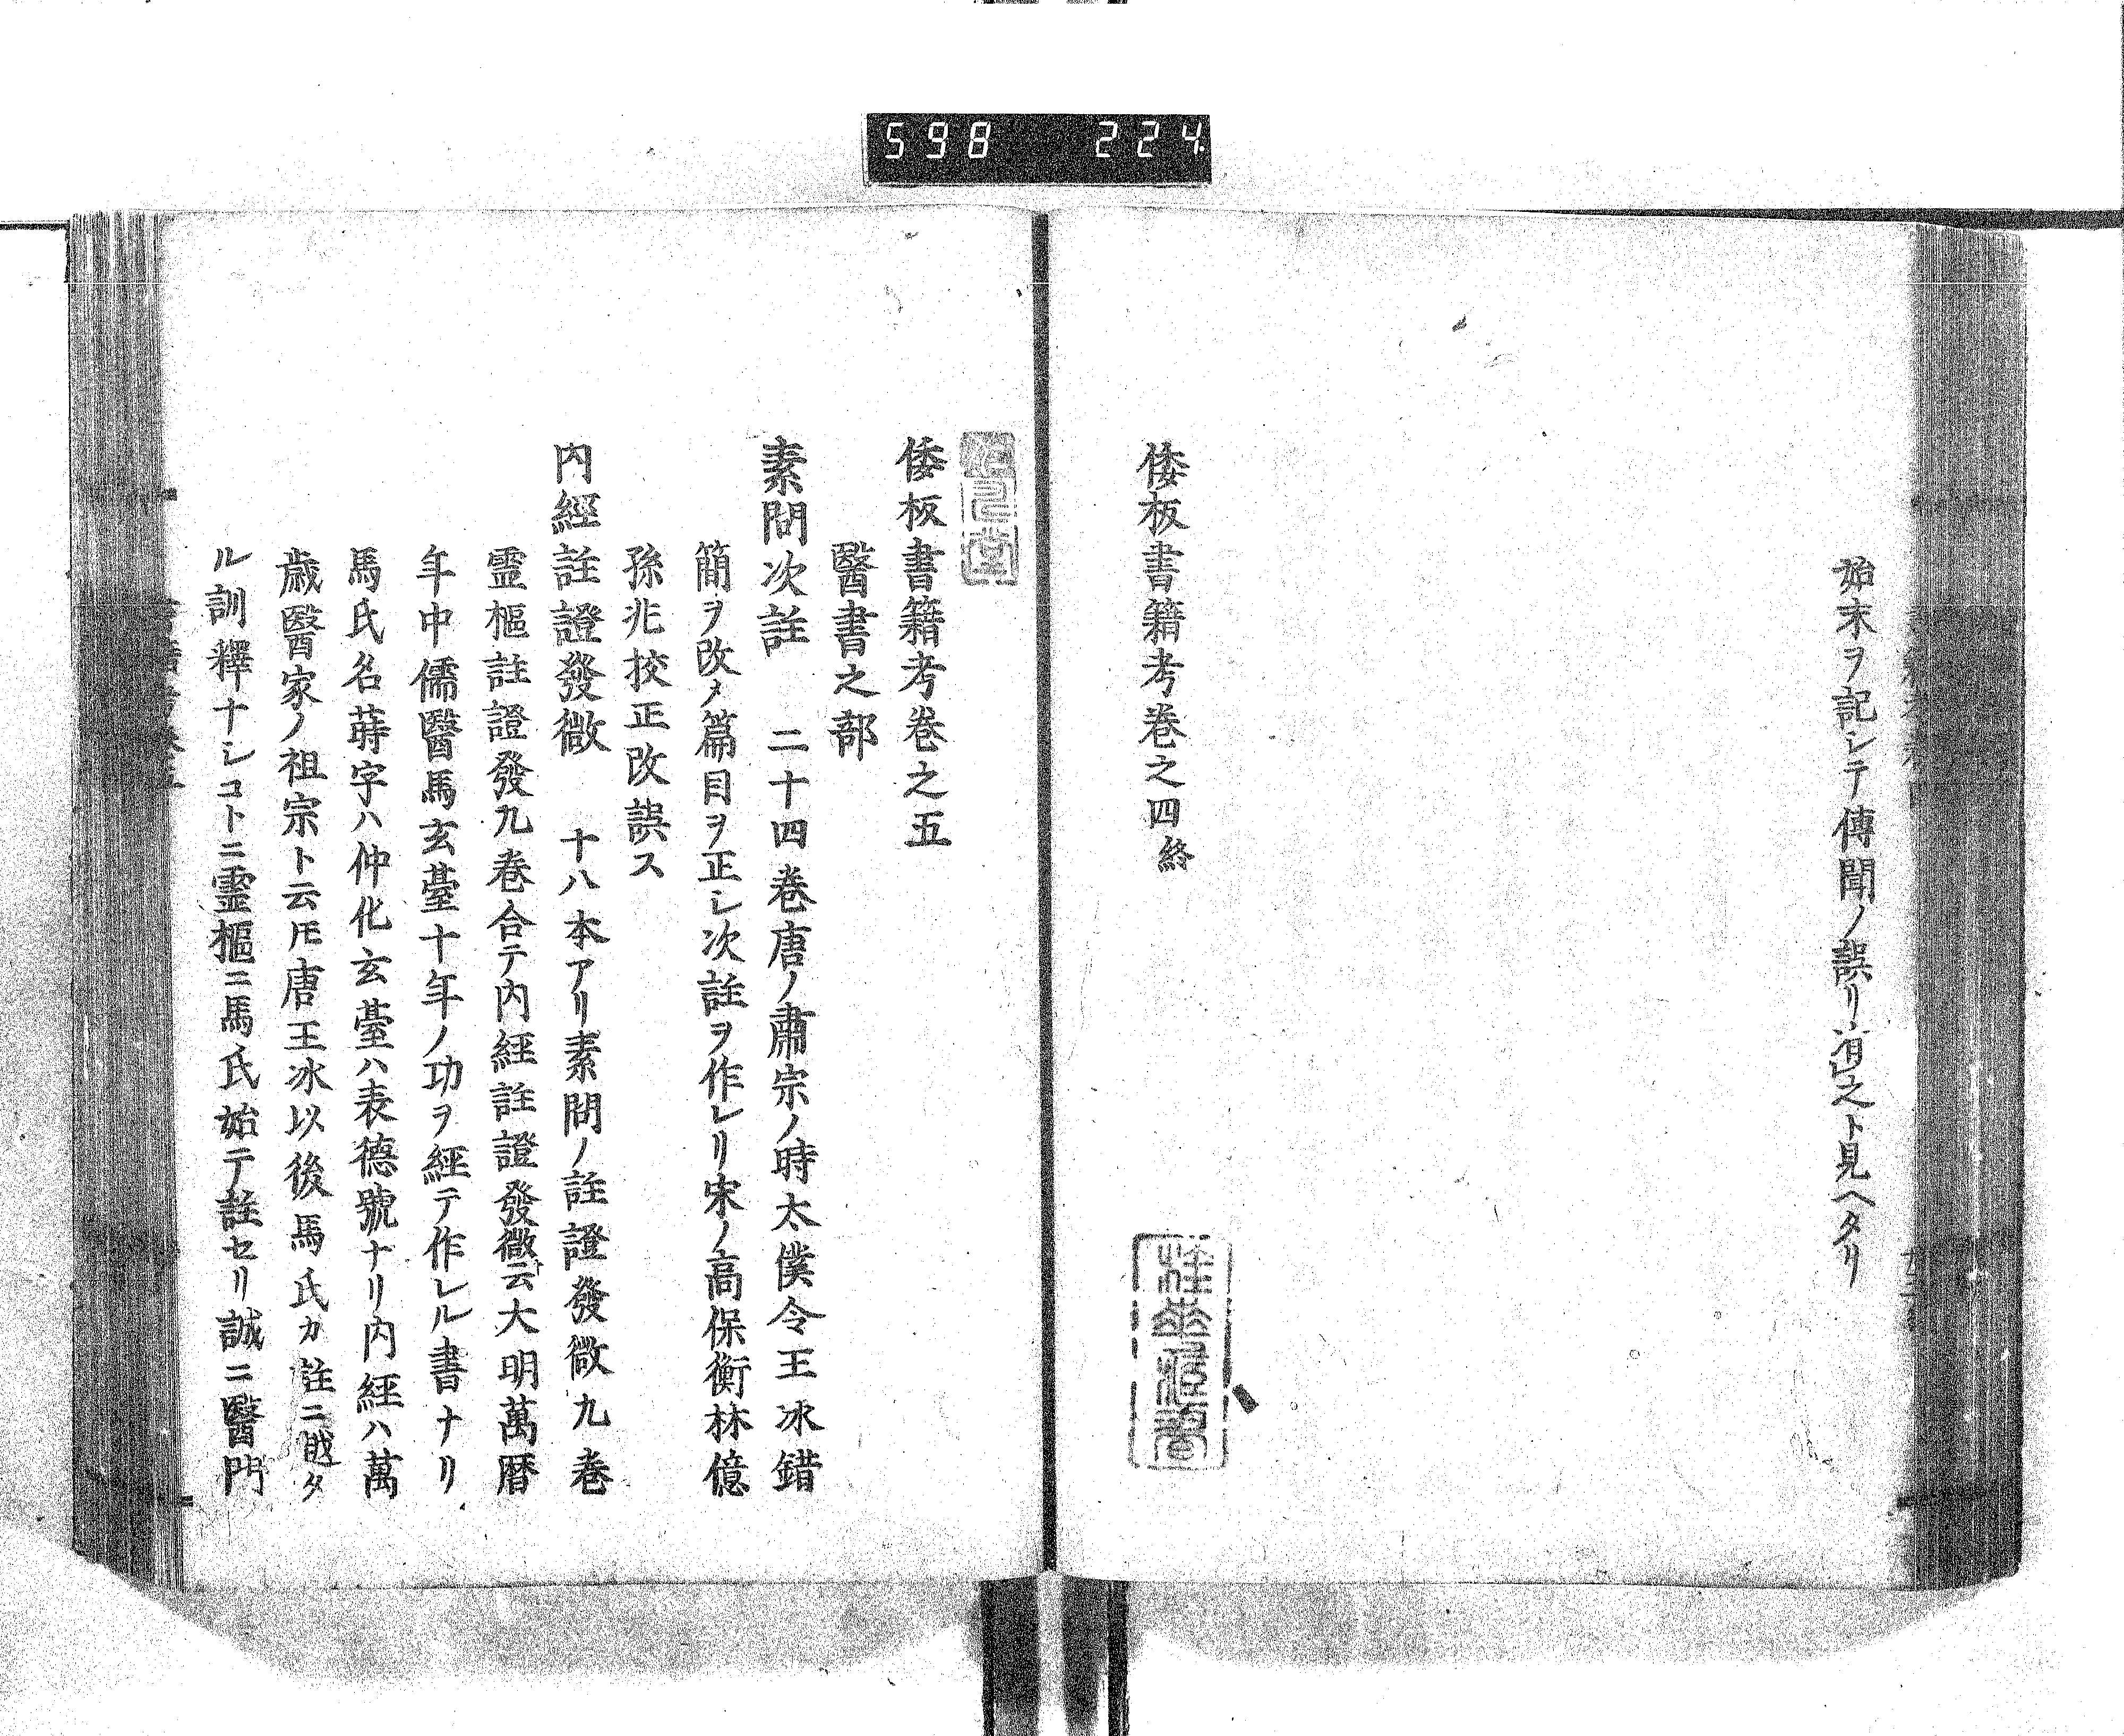 598 224
始末ヲ記シテ傳聞ノ誤リ有之ト見ヘタリ
倭板書籍考巻之四終
倭板書籍考巻之五
醫書之部
素問次註 二十四巻唐ノ肅宗ノ時太僕令王冰錯
簡ヲ改メ篇目ヲ正シ次註ヲ作レリ宋ノ高保衡林億
孫兆校正改誤ス
内經註證發微 十八本アリ素問ノ註證發微九巻
靈樞註證發九巻合テ内經註證發微ト云大明萬暦
年中儒醫馬玄臺十年ノ功ヲ經テ作レル書ナリ
馬氏名蒔字ハ仲化玄臺ハ表德號ナリ内經ハ萬
歳醫家ノ祖宗ト云𪜈唐王冰以後馬氏カ註ニ戝タ
ル訓釋ナシコトニ靈樞ニ馬氏始テ註セリ誠ニ醫門